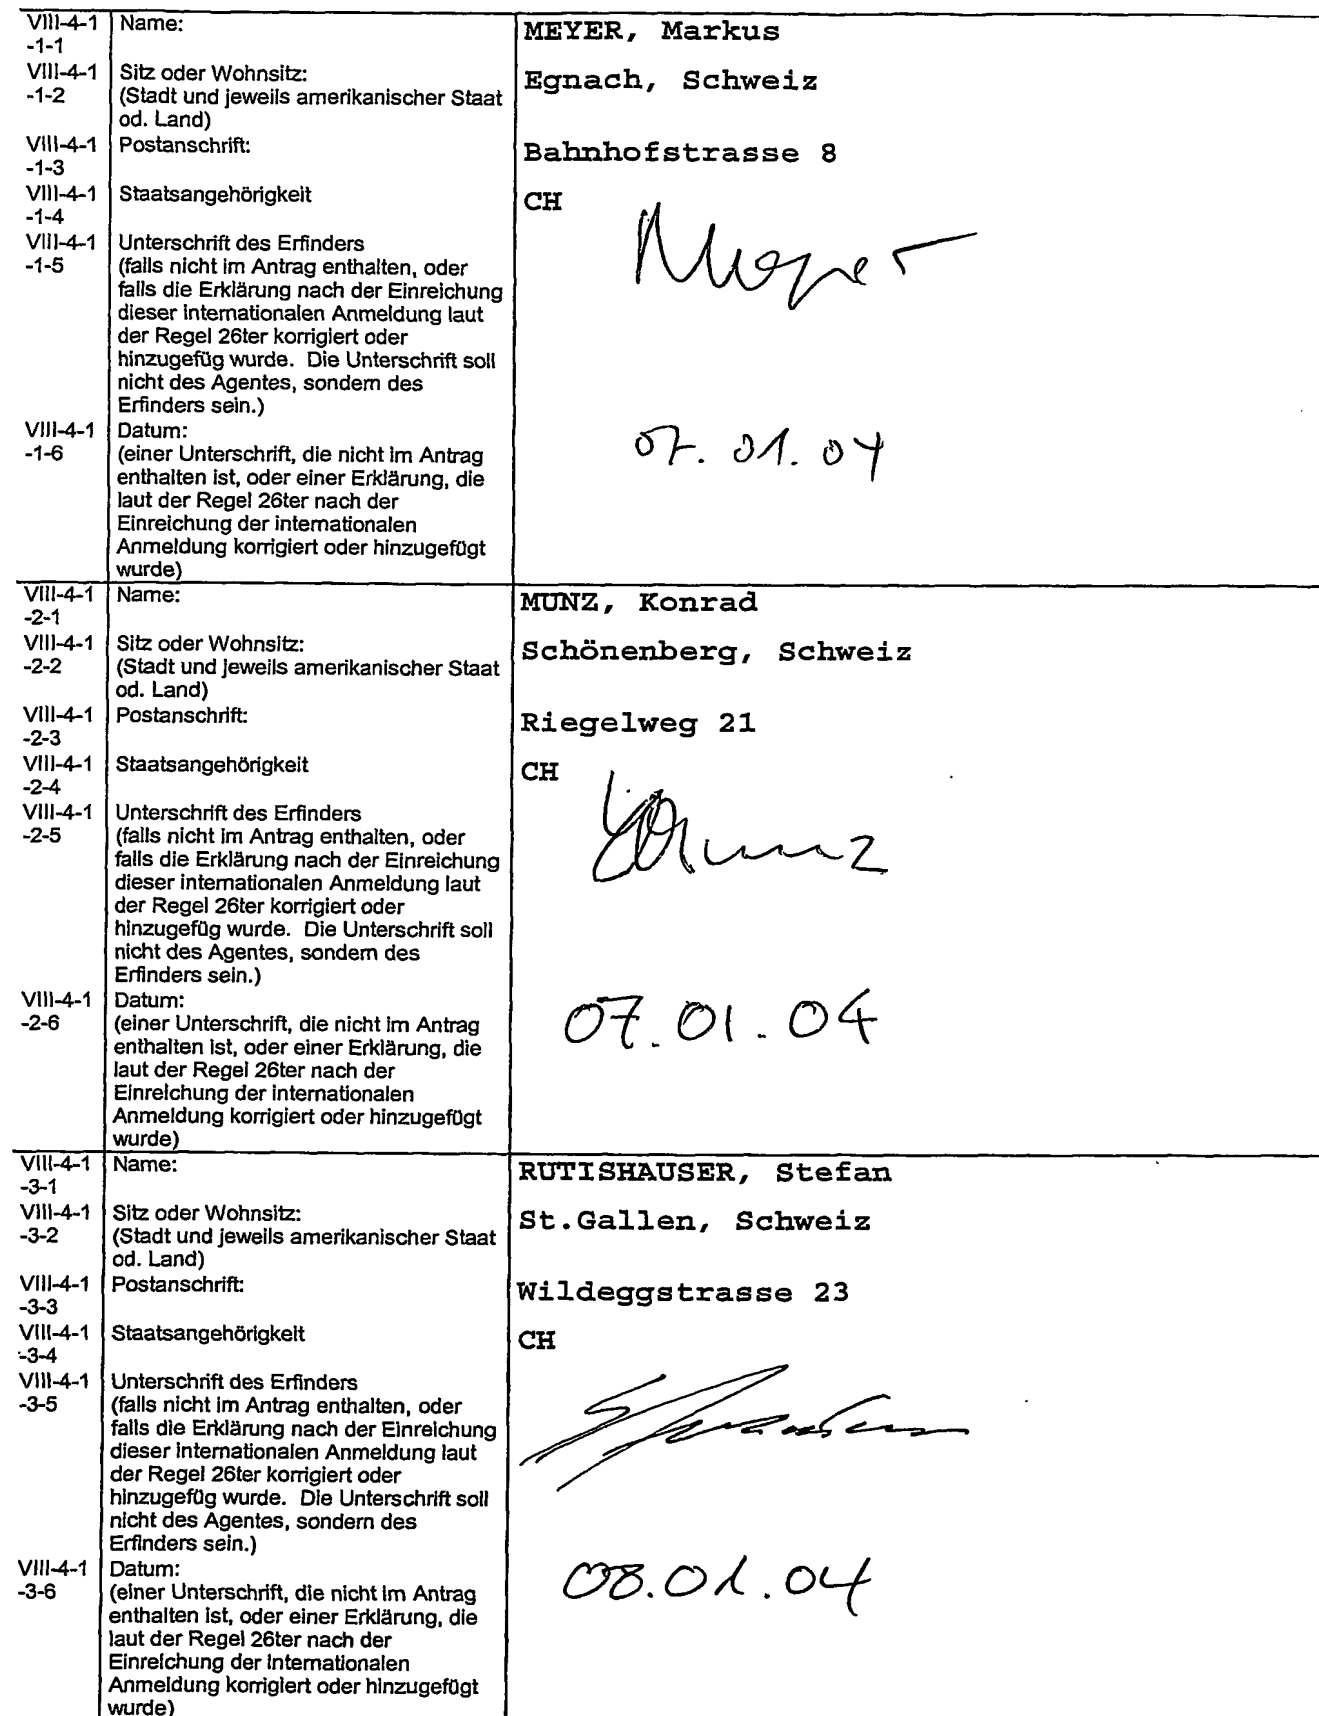 VIII-4-1 Name: MEYER, Markus
-1-1
VIII-4-1 Sitz oder Wohnsitz: Egnach, Schweiz
-1-2 (Stadt und jeweils amerikanischer Staat
od. Land)
VIII-4-1 Postanschrift: Bahnhofstrasse 8
-1-3
VIII-4-1 Staatsangehörigkeit CH
-1-4
Meyer
VIII-4-1 Unterschrift des Erfinders
-1-5 (falls nicht im Antrag enthalten, oder
falls die Erklärung nach der Einreichung
dieser internationalen Anmeldung laut
der Regel 26ter korrigiert oder
hinzugefüg wurde. Die Unterschrift soll
nicht des Agentes, sondern des
Erfinders sein.)
VIII-4-1 Datum: 07.01.04
-1-6 (einer Unterschrift, die nicht im Antrag
enthalten ist, oder einer Erklärung, die
laut der Regel 26ter nach der
Einreichung der internationalen
Anmeldung korrigiert oder hinzugefügt
wurde)
VIII-4-1 Name: MUNZ, Konrad
-2-1
VIII-4-1 Sitz oder Wohnsitz: Schönenberg, Schweiz
-2-2 (Stadt und jeweils amerikanischer Staat
od. Land)
VIII-4-1 Postanschrift: Riegelweg 21
-2-3
VIII-4-1 Staatsangehörigkeit CH
-2-4
VIII-4-1 Unterschrift des Erfinders
-2-5 (falls nicht im Antrag enthalten, oder
falls die Erklärung nach der Einreichung
dieser internationalen Anmeldung laut
der Regel 26ter korrigiert oder
hinzugefüg wurde. Die Unterschrift soll
nicht des Agentes, sondern des
Erfinders sein.)
VIII-4-1 Datum: 07.01.04
-2-6 (einer Unterschrift, die nicht im Antrag
enthalten ist, oder einer Erklärung, die
laut der Regel 26ter nach der
Einreichung der internationalen
Anmeldung korrigiert oder hinzugefügt
wurde)
VIII-4-1 Name: RUTISHAUSER, Stefan
-3-1
VIII-4-1 Sitz oder Wohnsitz: St.Gallen, Schweiz
-3-2 (Stadt und jeweils amerikanischer Staat
od. Land)
VIII-4-1 Postanschrift: Wildeggstrasse 23
-3-3
VIII-4-1 Staatsangehörigkeit CH
-3-4
VIII-4-1 Unterschrift des Erfinders
-3-5 (falls nicht im Antrag enthalten, oder
falls die Erklärung nach der Einreichung
dieser internationalen Anmeldung laut
der Regel 26ter korrigiert oder
hinzugefüg wurde. Die Unterschrift soll
nicht des Agentes, sondern des
Erfinders sein.)
VIII-4-1 Datum: 08.01.04
-3-6 (einer Unterschrift, die nicht im Antrag
enthalten ist, oder einer Erklärung, die
laut der Regel 26ter nach der
Einreichung der internationalen
Anmeldung korrigiert oder hinzugefügt
wurde)